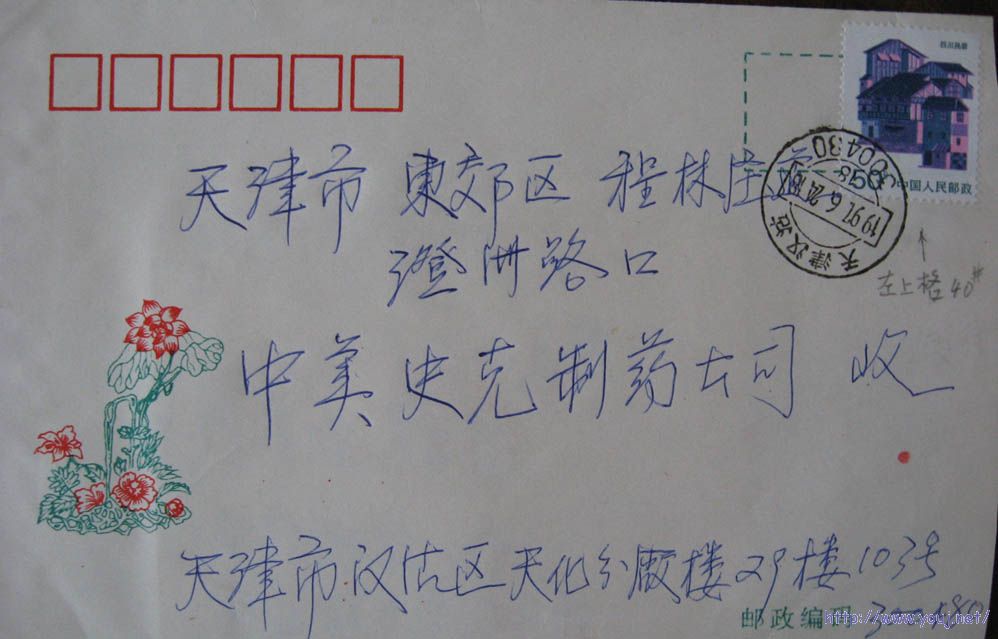 四川民居
50分
中国人民邮政
300430
1991.6.21.18
天津汉沽
左上格40#
天津市 東郊区 程林庄
澄洲路口
中美史克制药公司 收
天津市汉沽区天化分廠楼29楼103号
邮政编码 300480
http://www.youj.net/